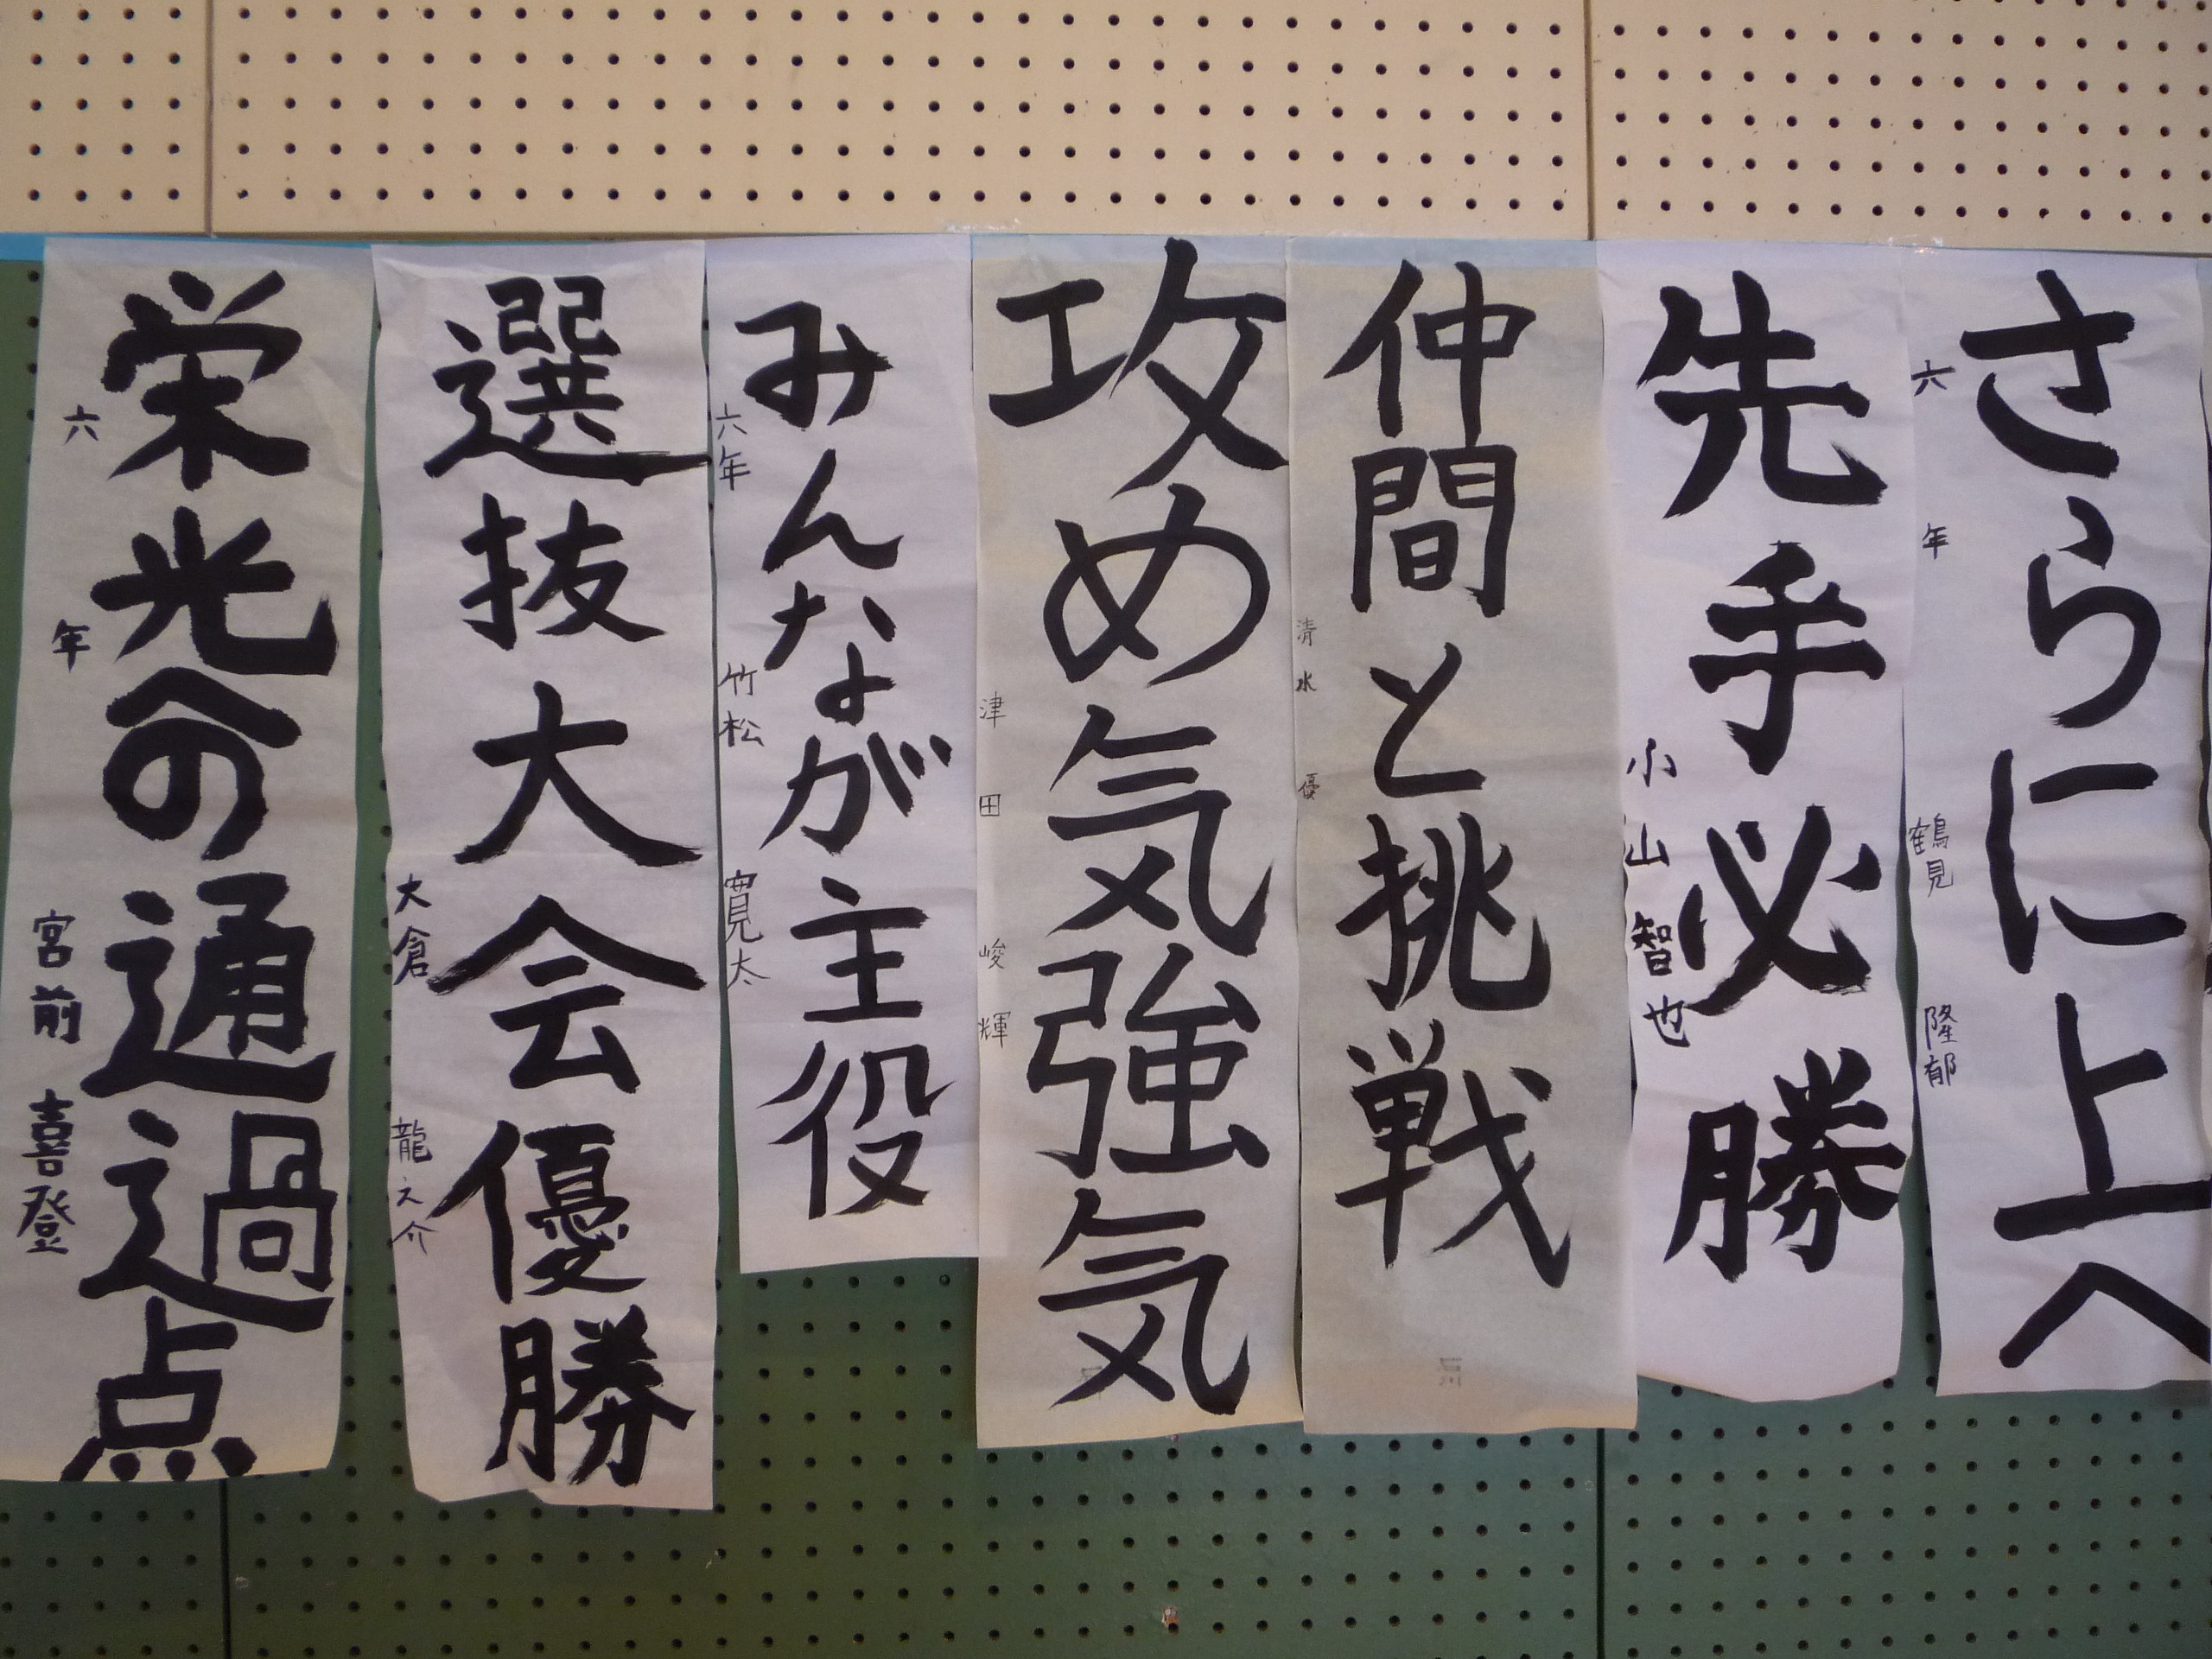 さらに上へ
六年 鶴見 隆郁
先手必勝
小山智也
仲間と挑戦
清水 優
攻め気強気
津田 峻輝
みんなが主役
六年 竹松 寛太
選抜大会優勝
大倉 龍之介
栄光への通過点
六年 宮前 喜登